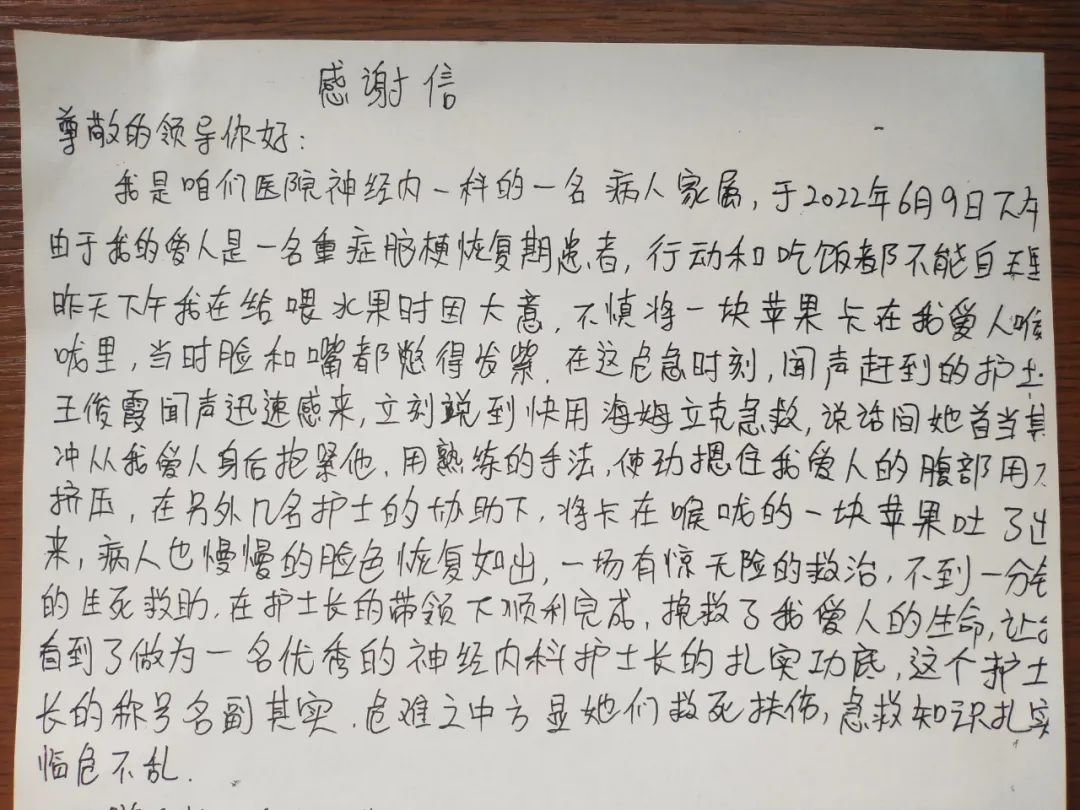 感谢信
尊敬的领导你好：
我是咱们医院神经内一科的一名病人家属，于2022年6月9日下午
由于我的爱人是一名重症脑梗恢复期患者，行动和吃饭都不能自理
昨天下午我在给喂水果时因大意，不慎将一块苹果卡在我爱人喉
咙里，当时脸和嘴都憋得发紫．在这危急时刻，闻声赶到的护士
王俊霞闻声迅速感来，立刻说到快用海姆立克急救，说话间她首当其
冲从我爱人身后抱紧他．用熟练的手法，使劲摁住我爱人的腹部用
挤压，在另外几名护士的协助下，将卡在喉咙的一块苹果吐了出
来，病人也慢慢的脸色恢复如出，一场有惊无险的救治，不到一分钟
的生死救助．在护士长的带领下顺利完成，挽救了我爱人的生命，让
看到了做为一名优秀的神经内科护士长的扎实功底，这个护士
长的称号名副其实．危难之中方显她们救死扶伤，急救知识扎实
临危不乱．